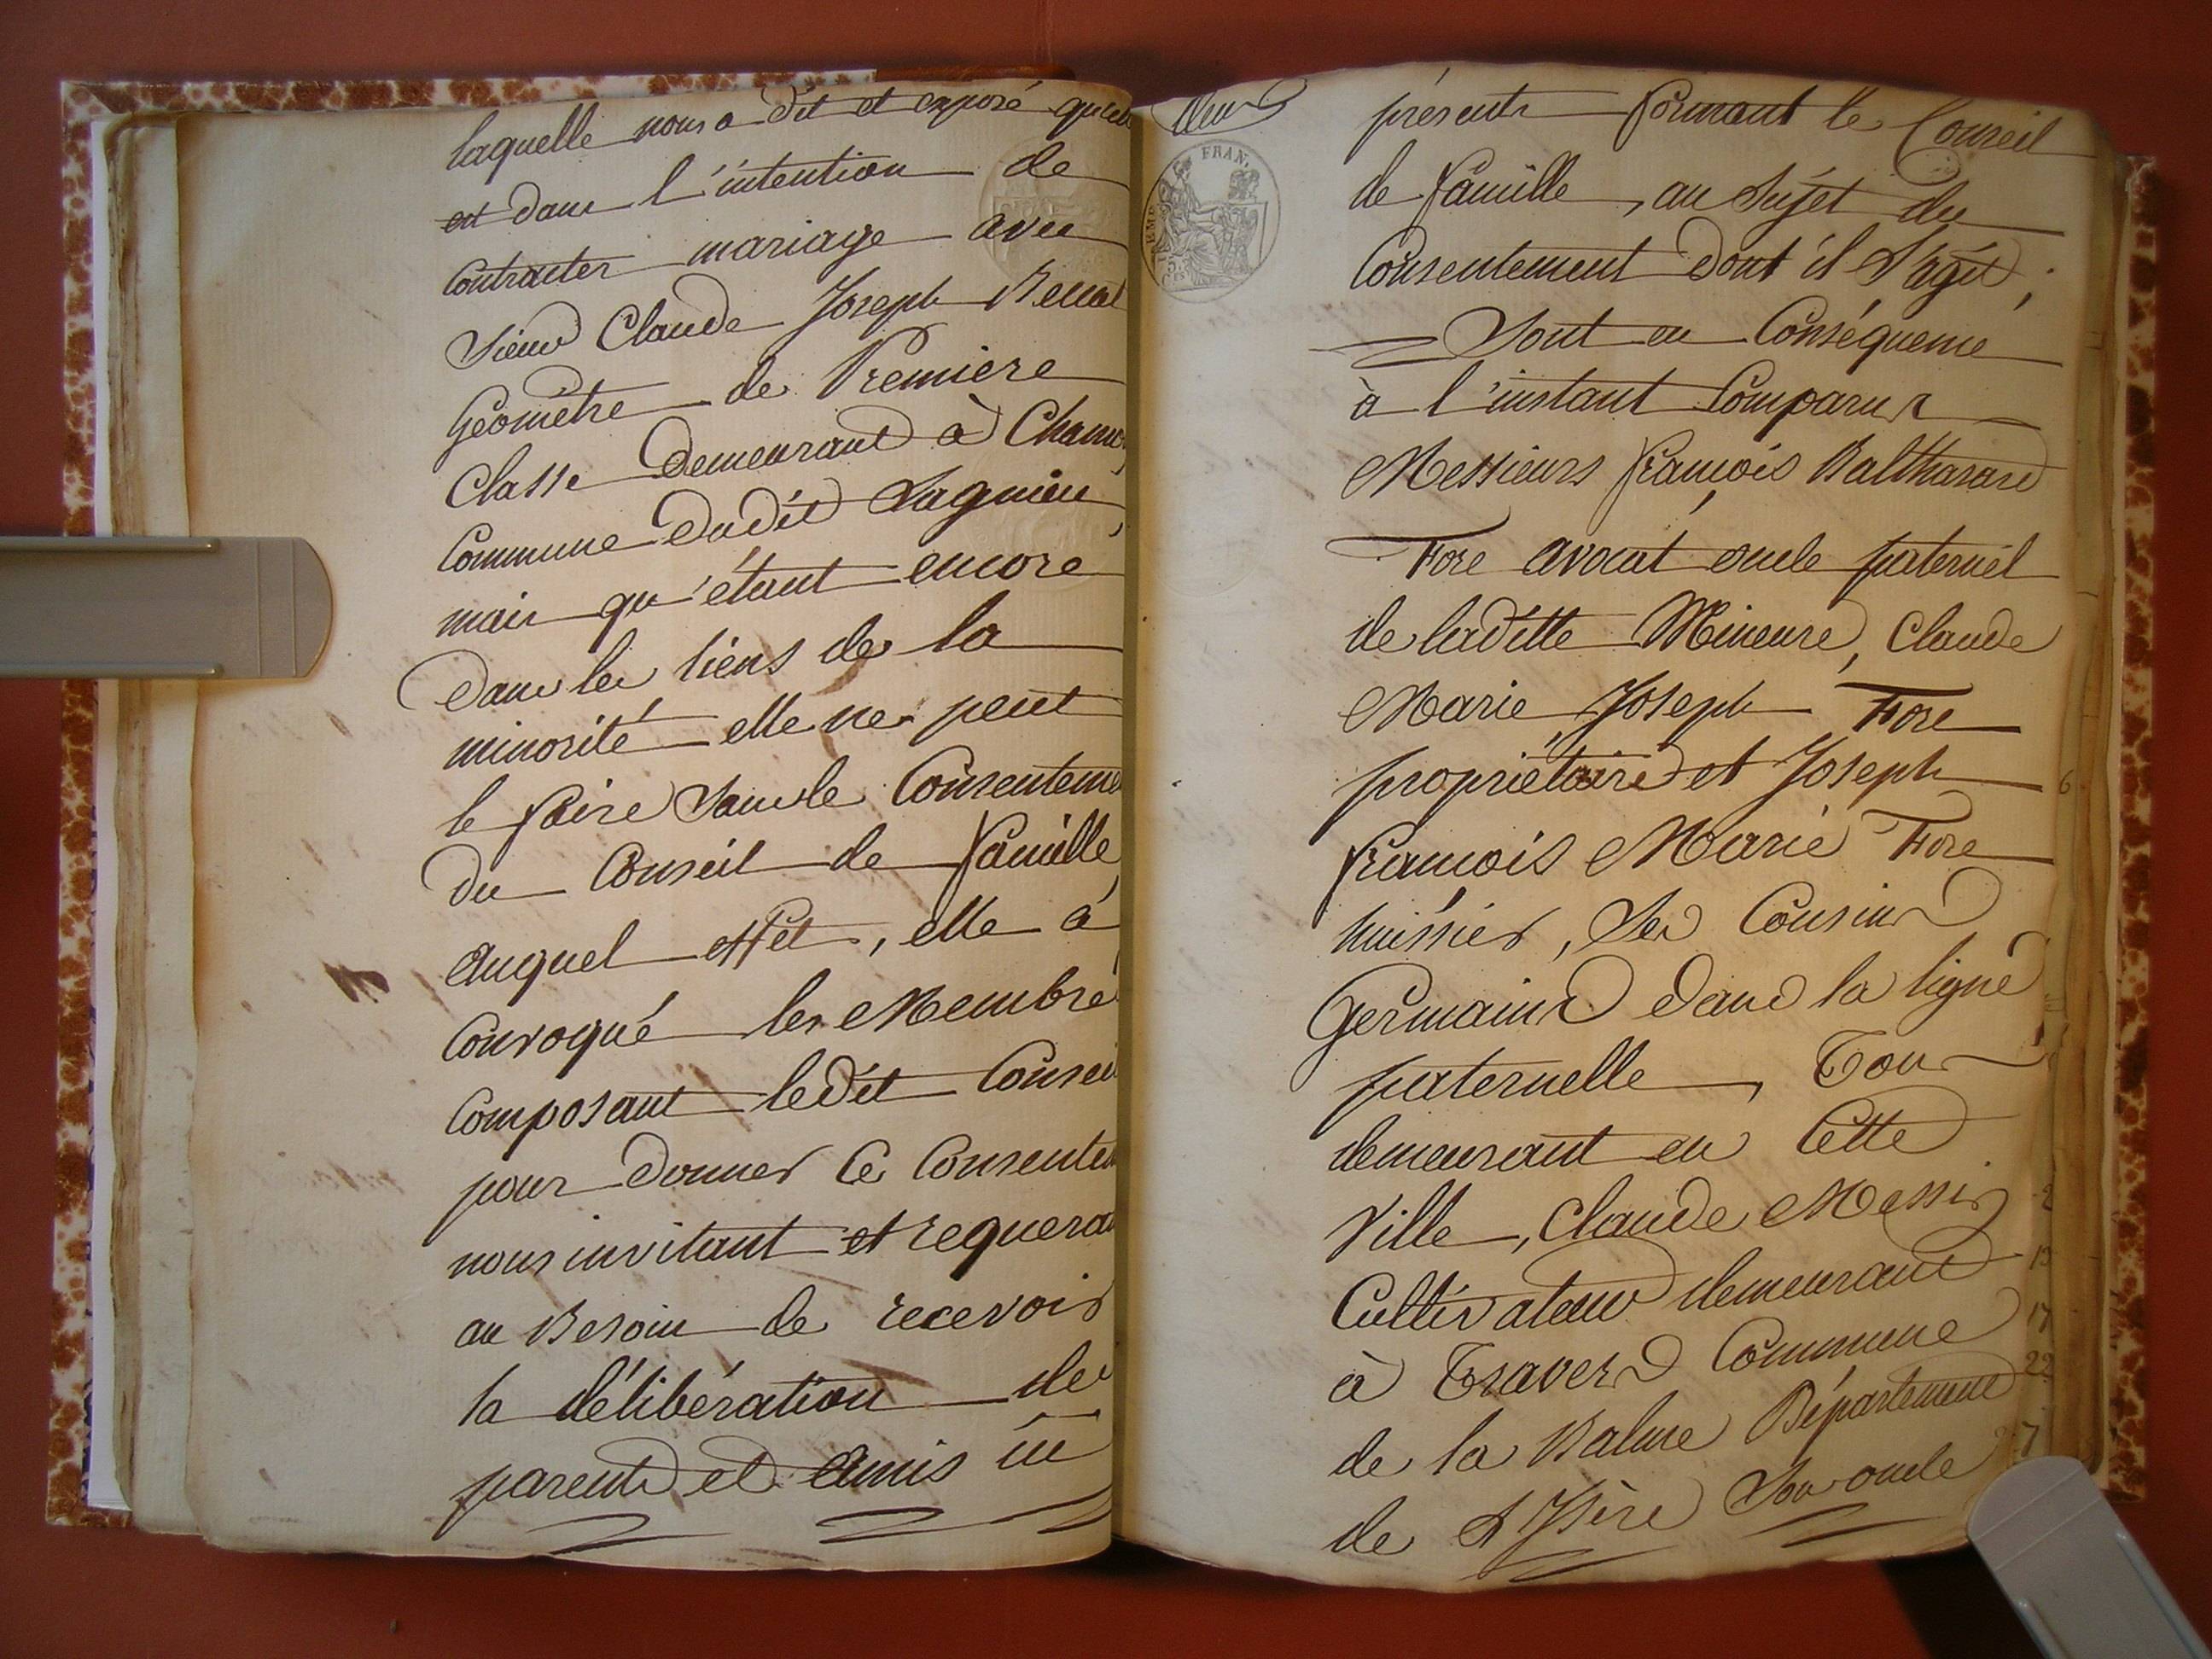 laquelle nous a dit et exposé qu'elle
est dans l'intention de
contracter mariage avec
Sieur Claude Joseph
Géomètre de Premiere
Classe demeurant à
Commune dudit Lagnieu,
mais qu'étant encore
dans les liens de la
minorité elle ne peut
le faire sans le Consenteme
du Conseil de famille
auquel effet, elle a
Convoqué les Membres
Composant ledit Conseil
pour donner ce Consentem
nous invitant et requeran
au Besoin de recevoir
la délibération des
parents et amis ici
FRAN.
présents formant le Conseil
de famille, au Sujet du
Consentement dont il S'agit;
Sont en Conséquence
à l'instant Comparus
Messieurs françois Balthazard
Fore avocat oncle paternel
de laditte Mineure, Claude
Marie Joseph Fore
propriétaire et Joseph
françois Marie Fore
huissier, Ses Cousins
Germains dans la ligne
paternelle, Tous
demeurant en Cette
Ville, Claude
Cultivateur demeurant
à Travers Commune
de la Balme Département
de L'Isère Son oncle